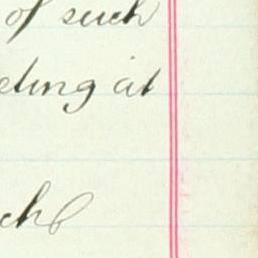 of such
eting at
ch